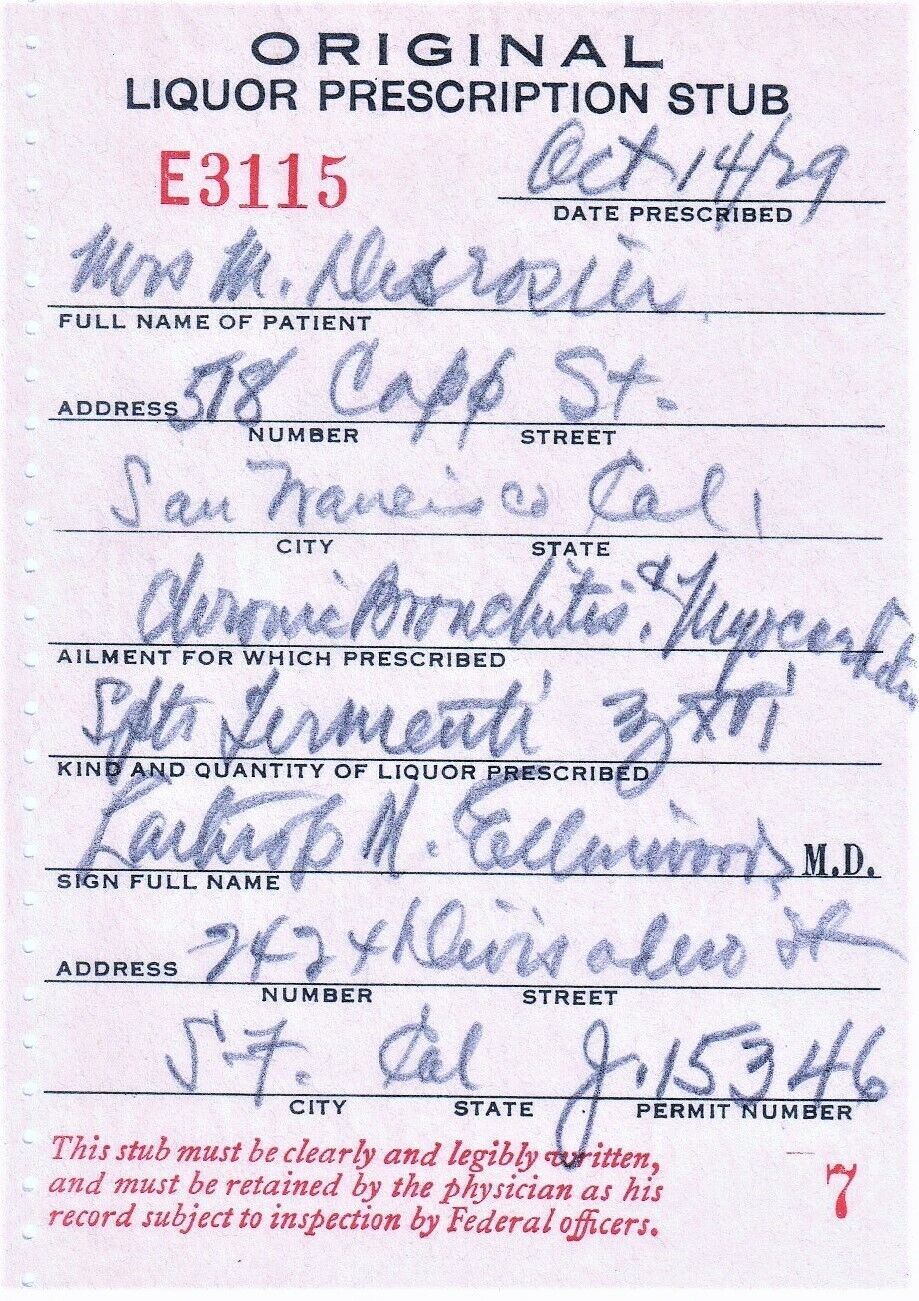 ORIGINAL
LIQUOR PRESCRIPTION STUB
E3115
Oct 14/29
DATE PRESCRIBED
Mrs M. Desrosier
FULL NAME OF PATIENT
ADDRESS 518 Capp St.
NUMBER STREET
San Francisco Cal.
CITY STATE
Chronic Bronchitis & Myocarditis
AILMENT FOR WHICH PRESCRIBED
Spts Fermenti ℥ XVI
KIND AND QUANTITY OF LIQUOR PRESCRIBED
M. Ellinwood M.D.
SIGN FULL NAME
ADDRESS 2424 Divisadero St
NUMBER STREET
S.F. Cal J.15346
CITY STATE PERMIT NUMBER
This stub must be clearly and legibly written,
and must be retained by the physician as his
record subject to inspection by Federal officers.
7